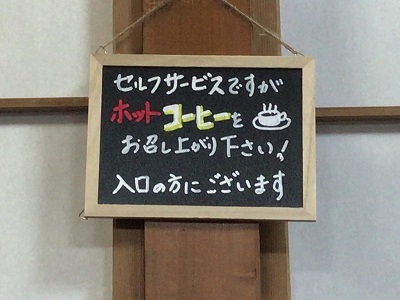 セルフサービスですが
ホットコーヒーを
お召し上がり下さい!
入口の方にございます